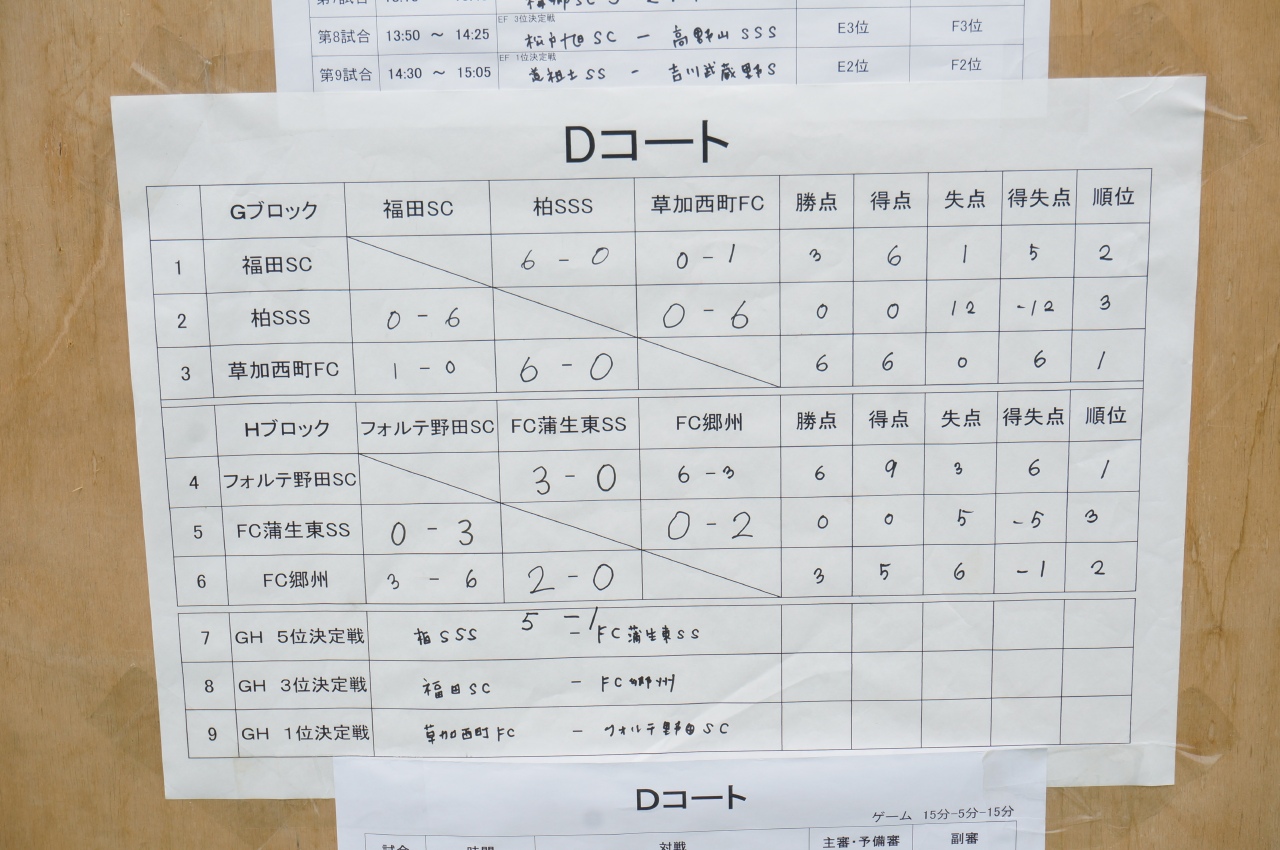 第8試合 13:50 ～ 14:25 EF 3位決定戦 松戸旭SC － 高野山SSS E3位 F3位
第9試合 14:30 ～ 15:05 EF 1位決定戦 道祖土SS － 吉川武蔵野S E2位 F2位
Dコート
Gブロック 福田SC 柏SSS 草加西町FC 勝点 得点 失点 得失点 順位
1 福田SC 6 - 0 0 - 1 3 6 1 5 2
2 柏SSS 0 - 6 0 - 6 0 0 12 -12 3
3 草加西町FC 1 - 0 6 - 0 6 6 0 6 1
Hブロック フォルテ野田SC FC蒲生東SS FC郷州 勝点 得点 失点 得失点 順位
4 フォルテ野田SC 3 - 0 6 - 3 6 9 3 6 1
5 FC蒲生東SS 0 - 3 0 - 2 0 0 5 -5 3
6 FC郷州 3 - 6 2 - 0 3 5 6 -1 2
7 GH 5位決定戦 柏SSS 5 - 1 － FC蒲生東SS
8 GH 3位決定戦 福田SC － FC郷州
9 GH 1位決定戦 草加西町FC － フォルテ野田SC
Dコート
ゲーム 15分-5分-15分
試合 時間 対戦 主審・予備審 副審